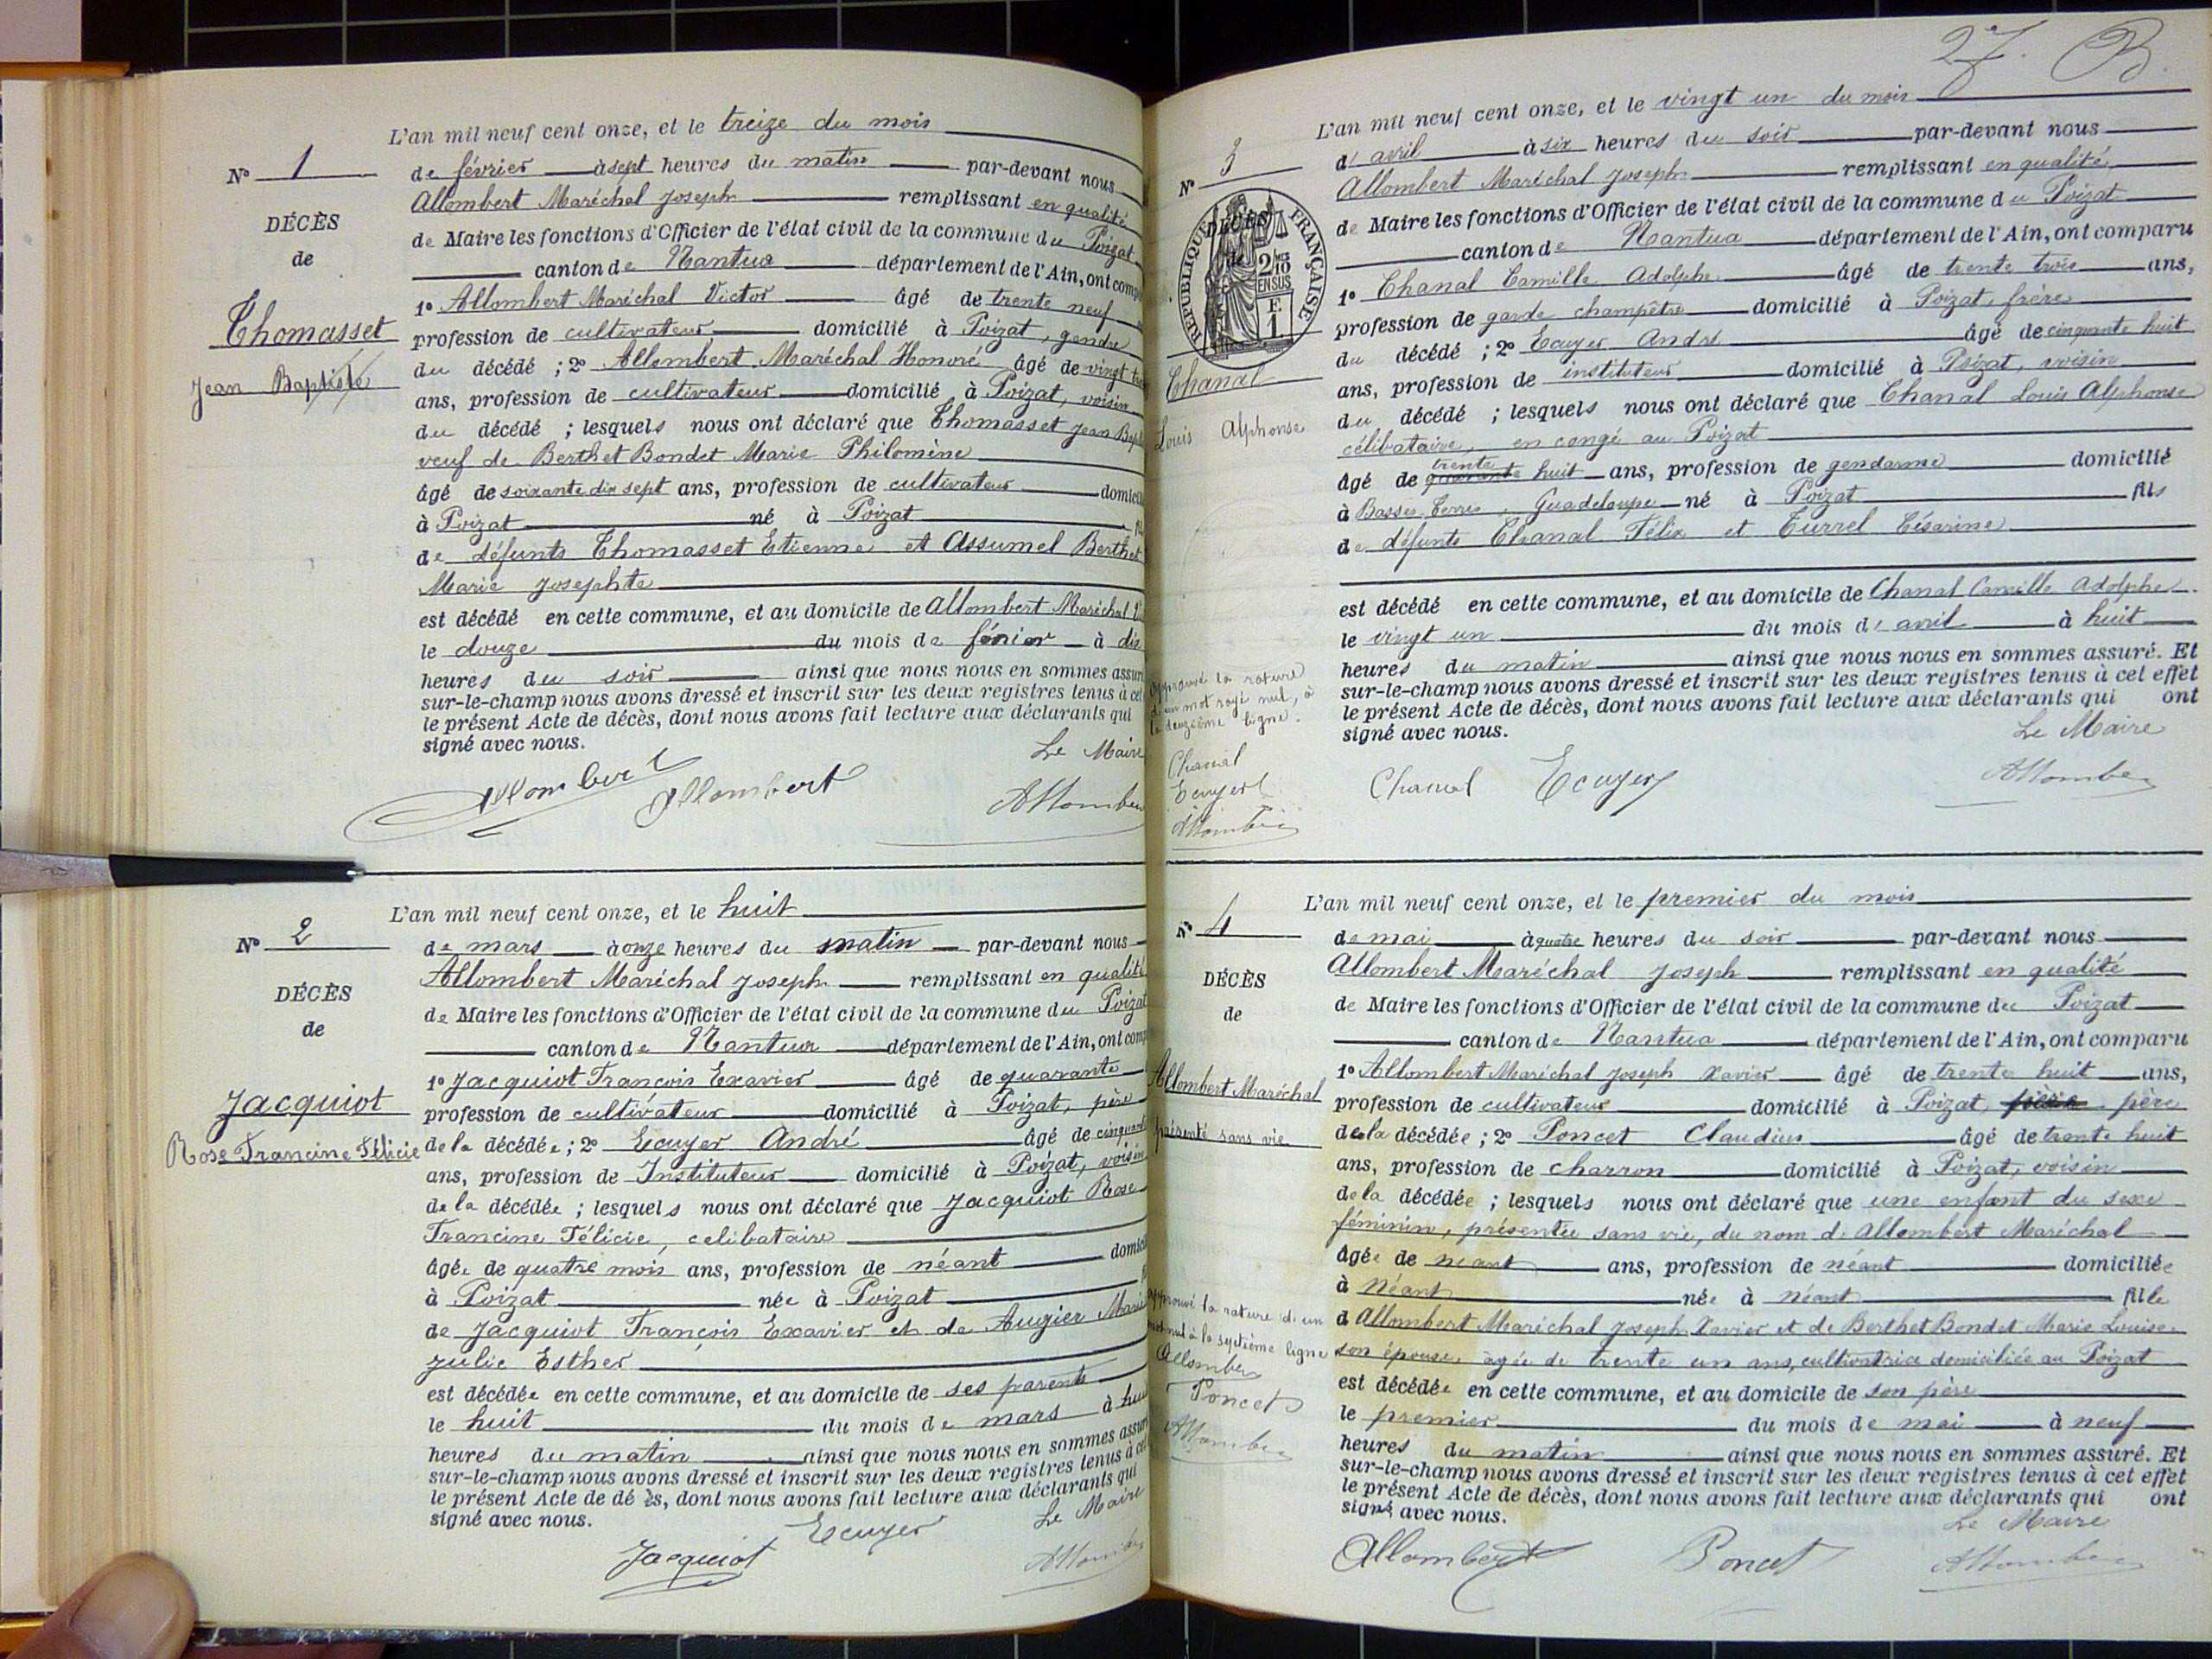 L'an mil neuf cent onze, et le treize du mois
N° 1
de février à sept heures du matin par-devant nous
Allombert Maréchal Joseph remplissant en qualité
DÉCÈS
de Maire les fonctions d'Officier de l'état civil de la commune du Poizat
de
canton de Nantua département de l'Ain, ont comp
1° Allombert Maréchal Victor âgé de trente neuf
Thomasset
profession de cultivateur domicilié à Poizat, gendre
Jean Baptiste
du décédé ; 2° Allombert Maréchal Honoré âgé de vingt
ans, profession de cultivateur domicilié à Poizat, voisin
du décédé ; lesquels nous ont déclaré que Thomasset Jean Bapt
veuf de Berthet Bondet Marie Philomène
âgé de soixante dix sept ans, profession de cultivateur domici
à Poizat né à Poizat
de défunts Thomasset Etienne et Assumel Berthet
Marie Josephte
est décédé en cette commune, et au domicile de Allombert Maréchal V
le douze du mois de février à dix
heures du soir ainsi que nous nous en sommes assur
sur-le-champ nous avons dressé et inscrit sur les deux registres tenus à cet
le présent Acte de décès, dont nous avons fait lecture aux déclarants qui
signé avec nous.
Le Maire
Allombert Allombert Allomber
L'an mil neuf cent onze, et le huit
N° 2
de mars à onze heures du matin par-devant nous
Allombert Maréchal Joseph remplissant en qualité
DÉCÈS
de Maire les fonctions d'Officier de l'état civil de la commune du Poizat
de
canton de Nantua département de l'Ain, ont comp
1° Jacquiot François Exavier âgé de quarante
Jacquiot
profession de cultivateur domicilié à Poizat, père
Rose Francine Félicie
de la décédée ; 2° Ecuyer André âgé de cinquante
ans, profession de Instituteur domicilié à Poizat, voisin
de la décédée ; lesquels nous ont déclaré que Jacquiot Rose
Francine Félicie, celibataire
âgée de quatre mois ans, profession de néant domici
à Poizat née à Poizat
de Jacquiot François Exavier et de Augier Marie
Julie Esther
est décédée en cette commune, et au domicile de ses parents
le huit du mois de mars à hui
heures du matin ainsi que nous nous en sommes assur
sur-le-champ nous avons dressé et inscrit sur les deux registres tenus à cet
le présent Acte de dé ès, dont nous avons fait lecture aux déclarants qui
signé avec nous.
Le Maire
Jacquiot Ecuyer Allomber
27. B.
L'an mil neuf cent onze, et le vingt un du mois
N° 3
d'avril à six heures du soir par-devant nous
Allombert Maréchal Joseph remplissant en qualité
DÉCÈS
de
RÉPUBLIQUE FRANÇAISE
2/10
EN SUS
E
1
de Maire les fonctions d'Officier de l'état civil de la commune du Poizat
canton de Nantua département de l'Ain, ont comparu
1° Chanal Camille Adolphe âgé de trente trois ans,
profession de garde champêtre domicilié à Poizat, frère
du décédé ; 2° Ecuyer André âgé de cinquante huit
Chanal
ans, profession de instituteur domicilié à Poizat, voisin
Louis Alphonse
du décédé ; lesquels nous ont déclaré que Chanal Louis Alphonse
célibataire, en congé au Poizat
trente
âgé de quarante huit ans, profession de gendarme domicilié
à Basse-Terre, Guadeloupe né à Poizat fils
de défunts Chanal Félix et Turrel Césarine
est décédé en cette commune, et au domicile de Chanal Camille Adolphe
le vingt un du mois d'avril à huit
heures du matin ainsi que nous nous en sommes assuré. Et
sur-le-champ nous avons dressé et inscrit sur les deux registres tenus à cet effet
le présent Acte de décès, dont nous avons fait lecture aux déclarants qui ont
signé avec nous.
Le Maire
approuvé la rature
d'un mot rayé nul, à
la deuzième ligne.
Chanal
Ecuyer
Allomber
Chanal Ecuyer Allomber
L'an mil neuf cent onze, et le premier du mois
N° 4
de mai à quatre heures du soir par-devant nous
Allombert Maréchal Joseph remplissant en qualité
DÉCÈS
de Maire les fonctions d'Officier de l'état civil de la commune du Poizat
de
canton de Nantua département de l'Ain, ont comparu
1° Allombert Maréchal Joseph Xavier âgé de trente huit ans,
Allombert Maréchal
profession de cultivateur domicilié à Poizat, père
présenté sans vie
de la décédée ; 2° Poncet Claudius âgé de trente huit
ans, profession de charron domicilié à Poizat, voisin
de la décédée ; lesquels nous ont déclaré que une enfant du sexe
féminin, présentée sans vie, du nom d. Allombert Maréchal
âgée de néant ans, profession de néant domiciliée
à Néant née à néant fille
d Allombert Maréchal Joseph Xavier et de Berthet Bondet Marie Louise
son épouse, agée de trente un ans, cultivatrice domiciliée au Poizat
est décédée en cette commune, et au domicile de son père
le premier du mois de mai à neuf
heures du matin ainsi que nous nous en sommes assuré. Et
sur-le-champ nous avons dressé et inscrit sur les deux registres tenus à cet effet
le présent Acte de décès, dont nous avons fait lecture aux déclarants qui ont
signé avec nous.
Le Maire
approuvé la rature d'un
mot nul à la septième ligne
Allomber
Poncet
Allomber
Allombert Poncet Allomber